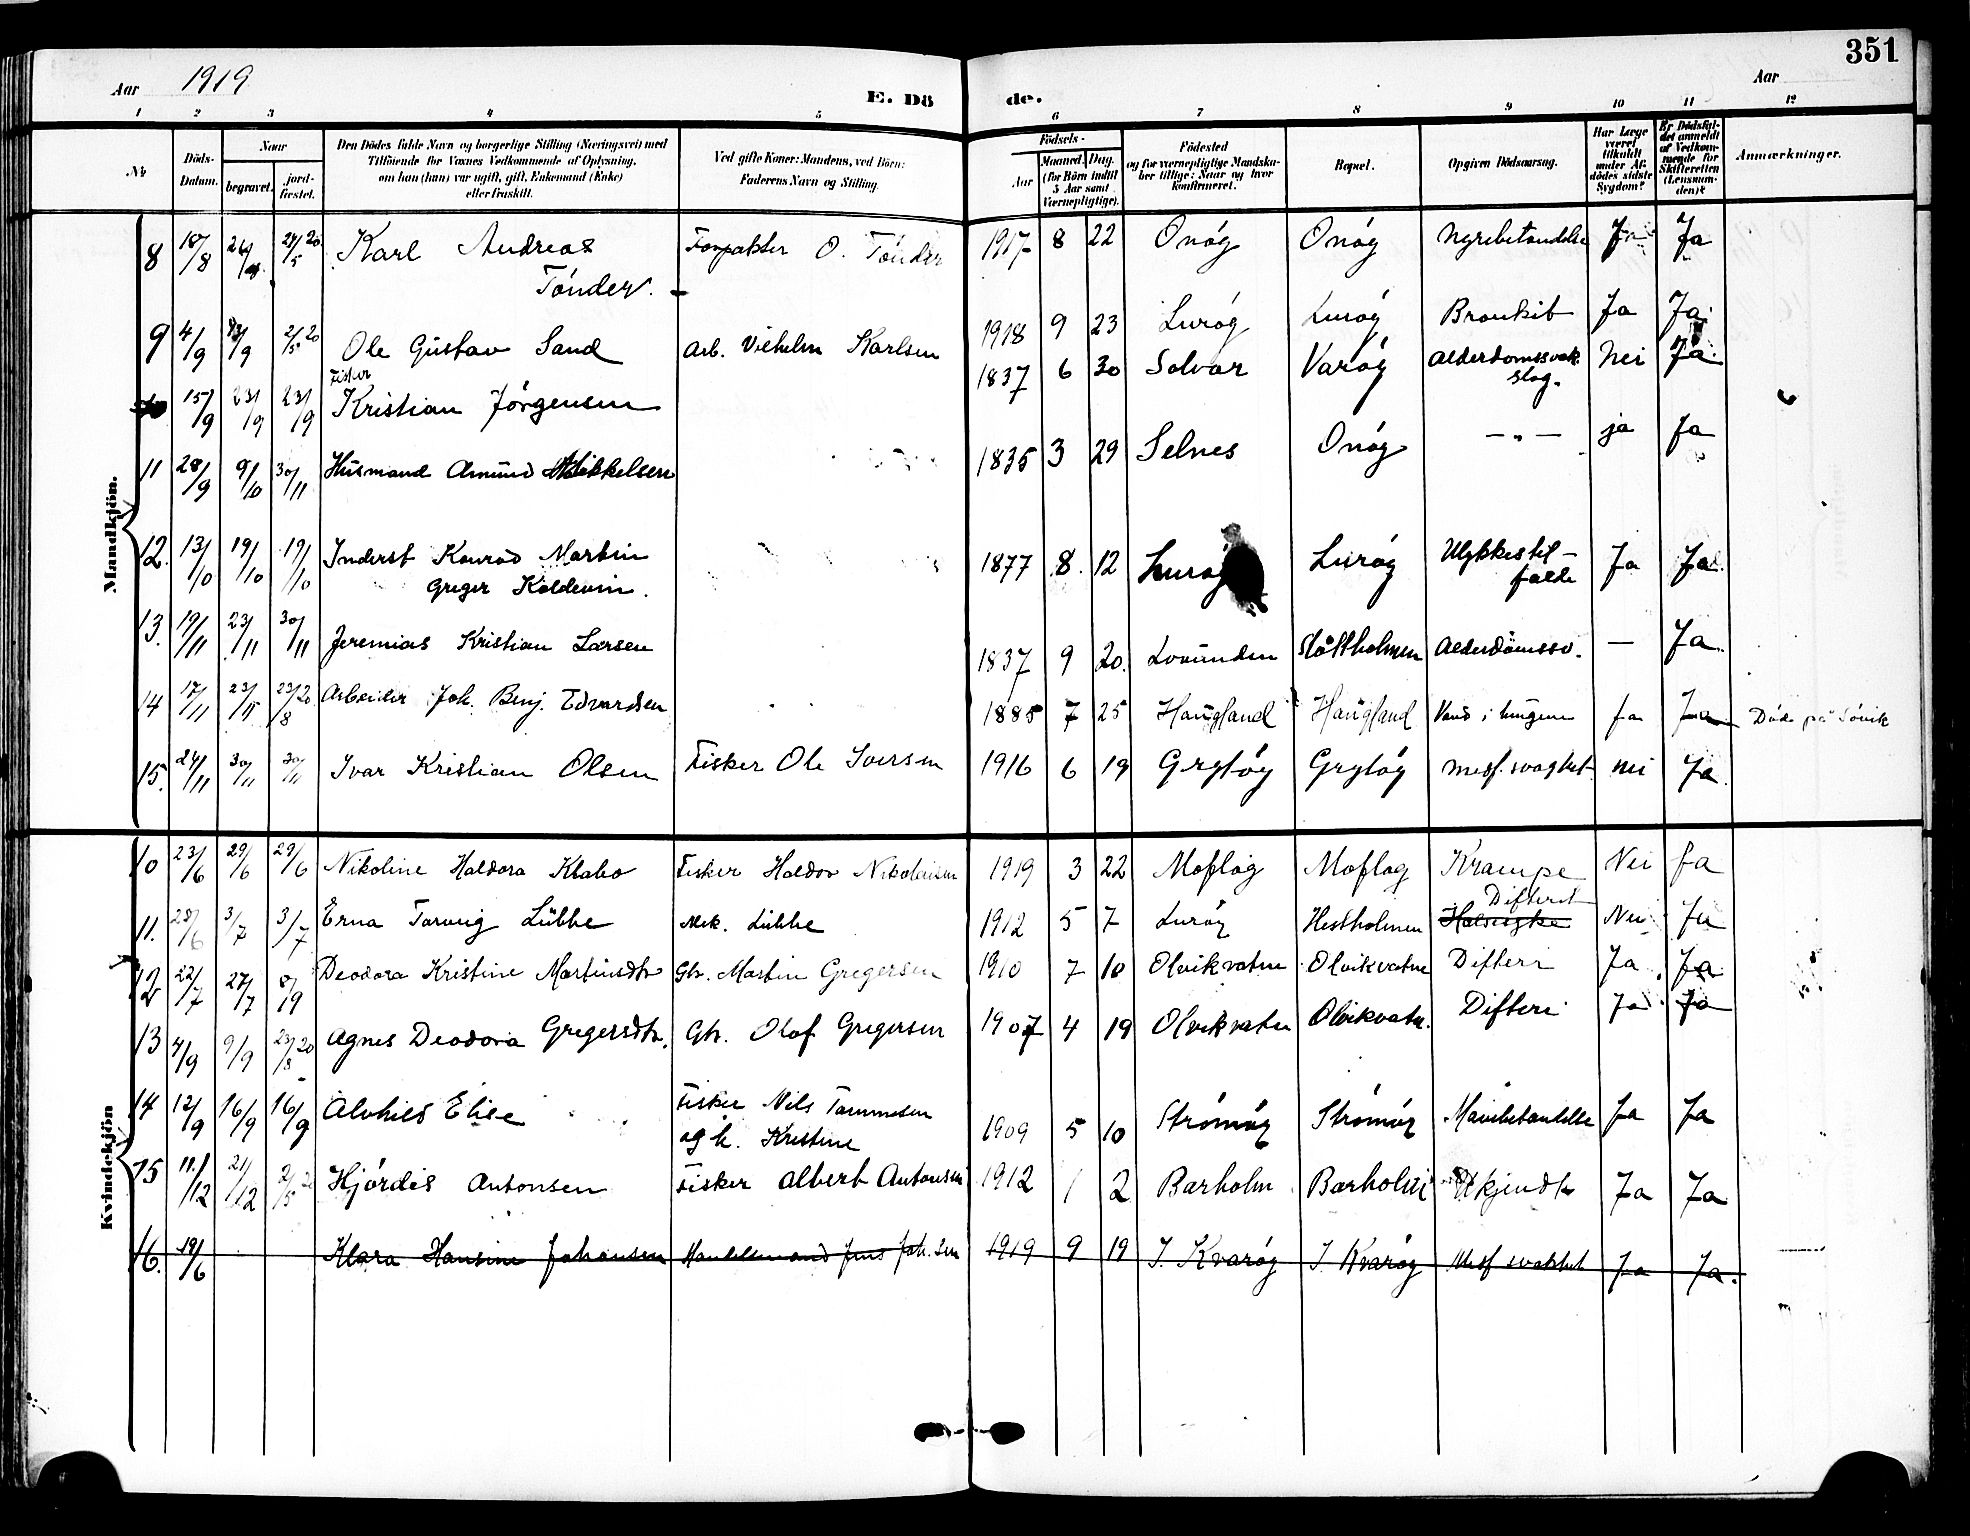 351
Aar 1919
Aar
E. Dö
de.
1 2 3 4 5 6 7 8 9 10 11 12
Nr.
Döds-Datum.
Naar
begravet.
jord-fæstet.
Den Dödes fulde Navn og borgerlige Stilling (Næringsvei) med
Tilföiende for Voxnes Vedkommende af Oplysning,
om han (hun) var ugift, gift, Enkemand (Enke)
eller fraskilt.
Ved gifte Koner: Mandens, ved Börn:
Faderens Navn og Stilling.
Födsels-
Aar
Maaned. Dag.
(for Börn indtil
5 Aar samt
Værnepligtige).
Födested
og for værnepligtige Mandska-
ber tillige: Naar og hvor
konfirmeret.
Bopæl.
Opgiven Dödsaarsag.
Har Læge
været
tilkaldt
under Af-
dödes sidste
Sygdom?
Er Dödsfal-
det anmeldt
af Vedkom-
mende for
Skifteretten
(Lensman-
den)?
Anmærkninger.
Mandkjön.
8 18/8 24/5 20 Karl Andreas Forpakter O. Tönder 1917 8 22 Onöy Onöy Nyrebetændelse Ja Ja
Tönder.
9 4/9 13/9 2/5 20 Ole Gustav Sand Arb. Vilhelm Karlsen 1918 9 23 Luröy Luröy Bronkit Ja Ja
Fisker
10 15/9 23/9 23/9 Kristian Jörgensen 1837 6 30 Solvær Varöy Alderdomssvak. slag. Nei Ja
11 28/9 9/10 30/11 Husmand Amund Mikkelsen 1835 3 29 Selnes Onöy — „ — ja Ja
12. 13/10 19/10 19/10 Inderst Konrad Martin 1877 8. 12 Luröy Luröy Ulykkestil- Ja Ja.
Greger Koldevin. fælde
13. 19/11 23/11 30/11 Jeremias Kristian Larsen 1837 9 20. Lovunden Slåttholmen Alderdömssv. — Ja
14 17/11 23/11 23/8 20 Arbeider Joh. Benj. Edvardsen 1885 7 25 Haugland Haugland Vand i lungene ja Ja Döde på Sövik
15. 24/11 30/11 30/11 Ivar Kristian Olsen Fisker Ole Iversen 1916 6 19 Grytöy Grytöy medf. svaghet nei Ja
Kvindekjön
10 23/6 29/6 29/6 Nikoline Haldora Klabo Fisker Haldor Nikolaisen 1919 3 22 Moflag Moflag Krampe Nei Ja
11. 28/6 3/7 3/7 Erna Torvuig Lübbe Mek. Lübbe 1912 5 7 Luröy Hestholmen Difterit Halssyke Nei Ja
12 22/7 27/7 8/19 Deodora Kristine Martinsdtr Gbr. Martin Gregersen 1910 7 10 Olvikvatne Olvikvatne Difteri Ja Ja
13 4/9 9/9 23/8 20 Agnes Deodora Gregersdtr. Gbr. Olaf Gregersen 1907 4 19 Olvikvatn Olvikvatn. Difteri Ja Ja
14 12/9 16/9 16/9 Alvhild Elise Fisker Nils Tommesen 1909 5 10 Strömöy Strömöy Ja Ja
og h. Kristine
15 11/12 21/12 2/5 20 Hjördis Antonsen Fisker Albert Antonsen 1912 1 2 Barholm Barholm Ukjendt Ja Ja
16. 19/6 Klara Hansine Johansen Handelsmand Jens Joh.sen 1919 9 19 I. Kvaröy I. Kvaröy Medf. svakhet Ja Ja.